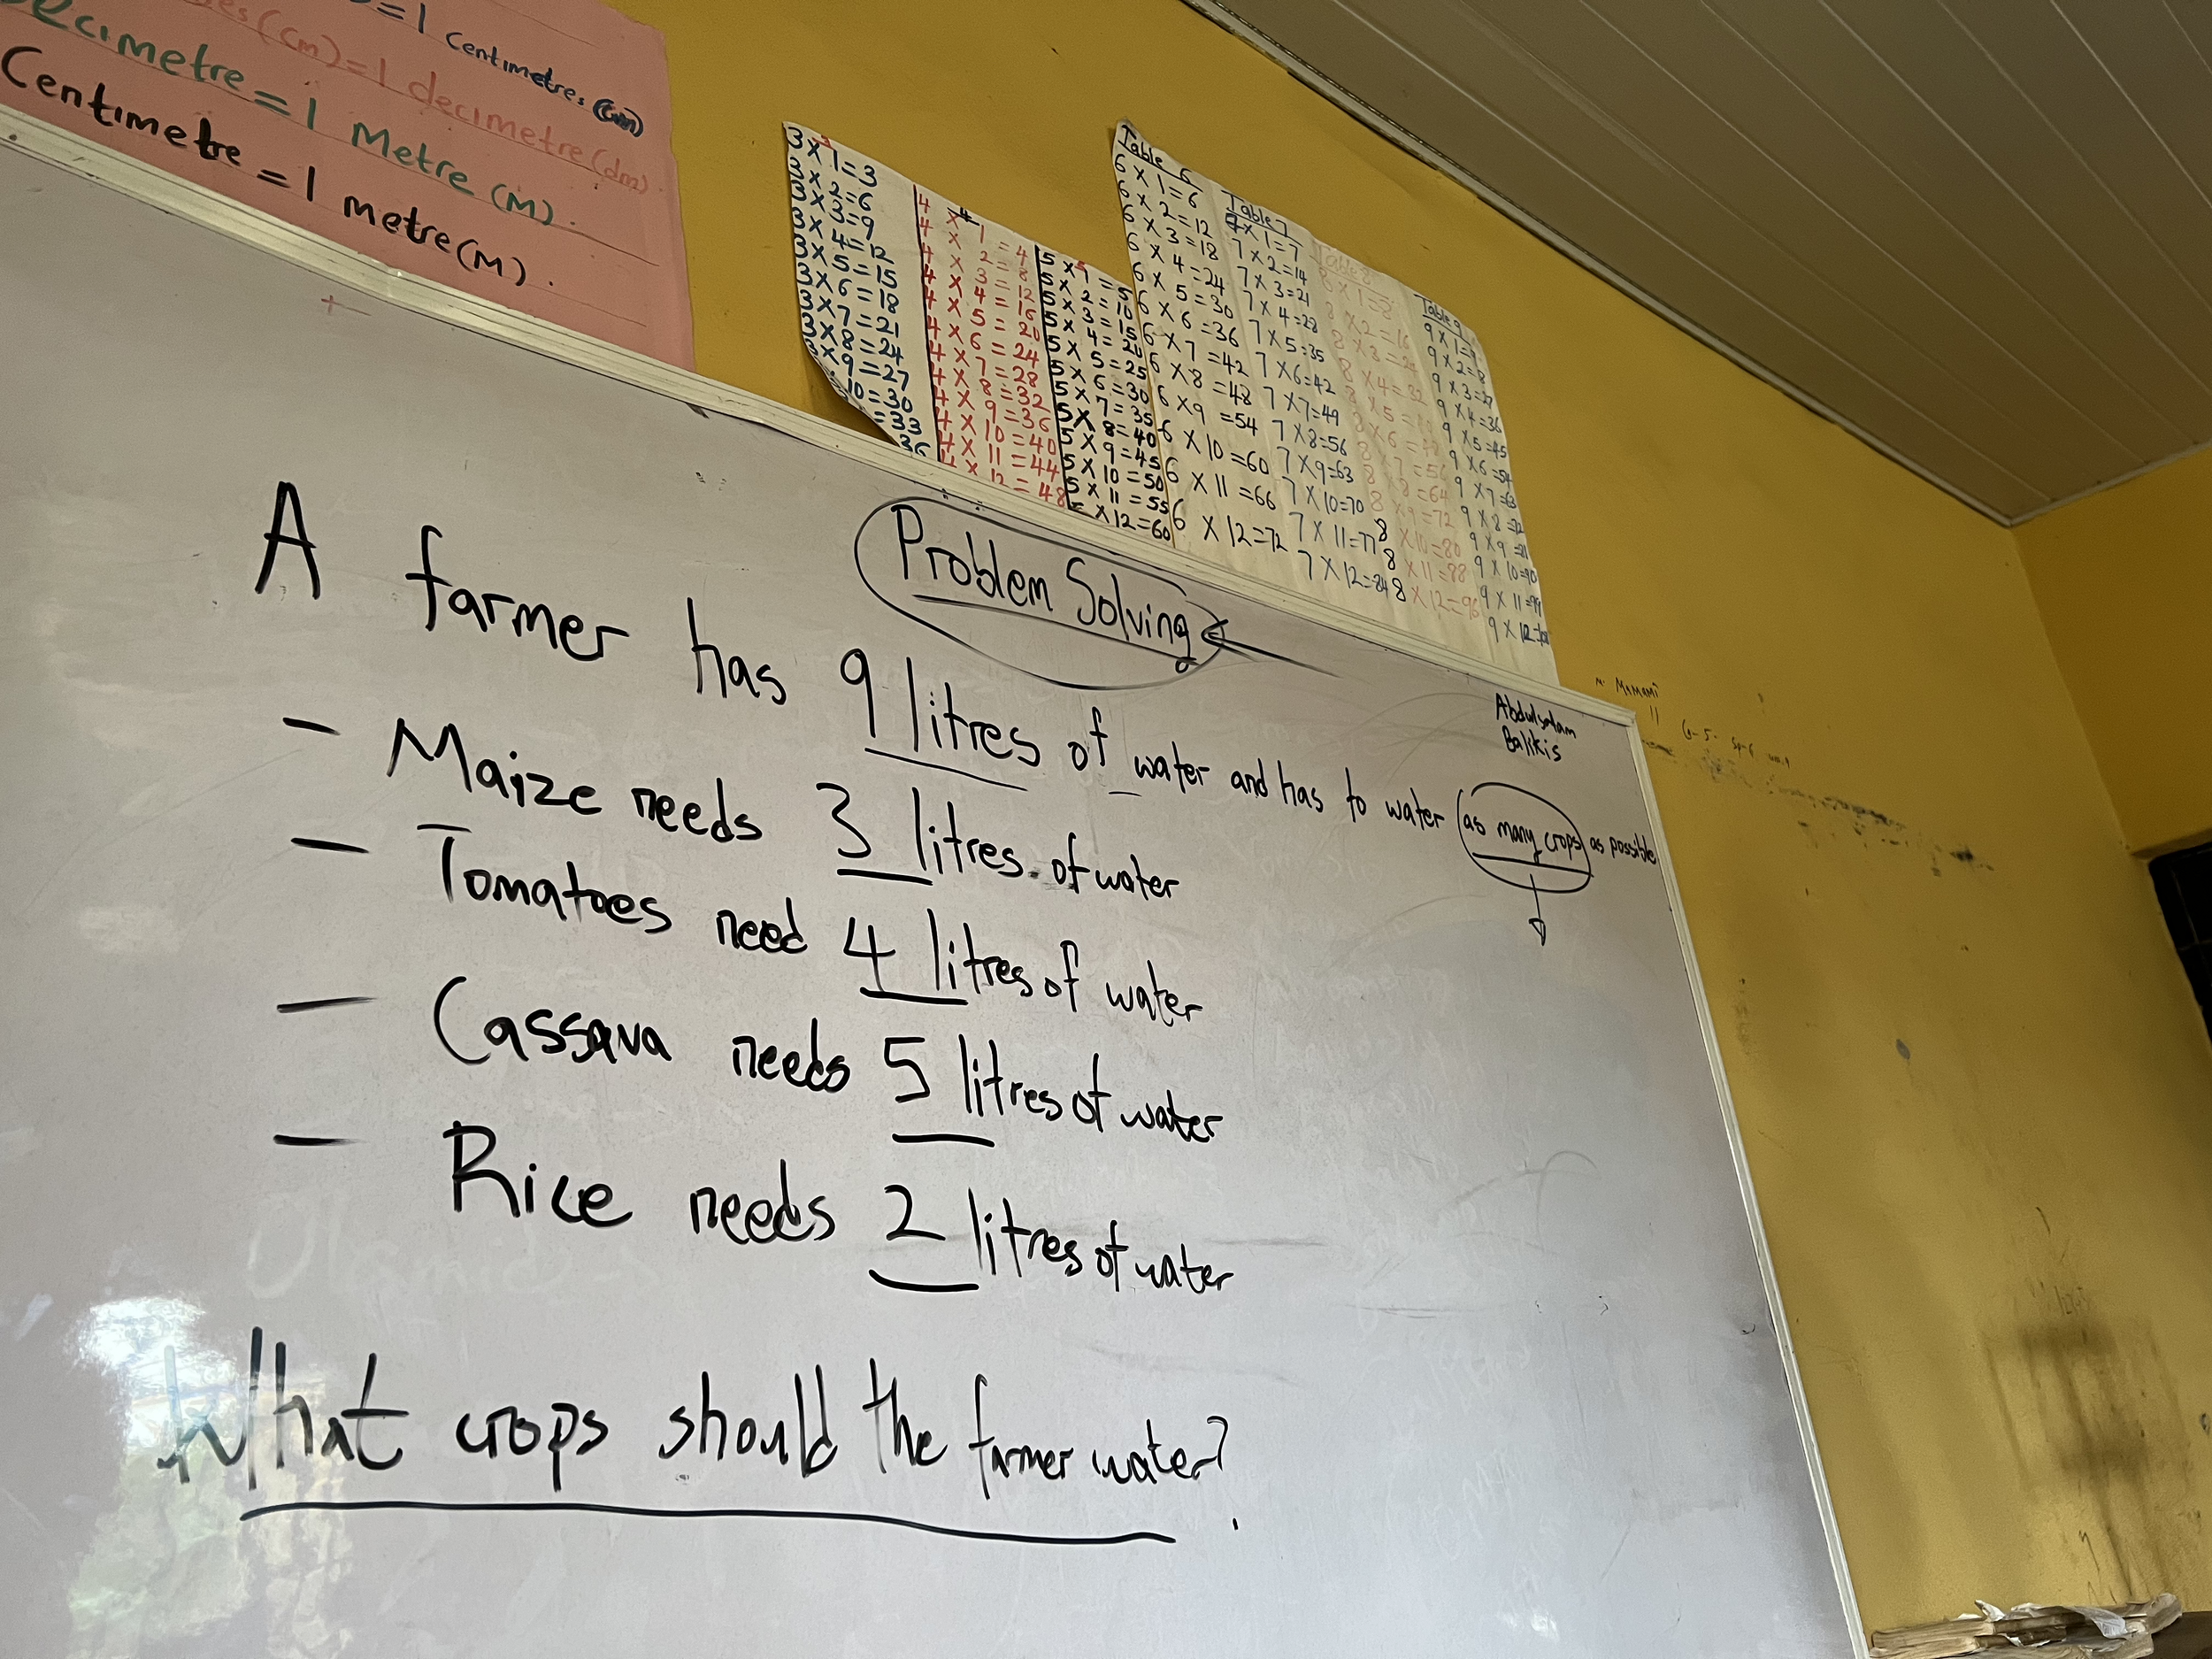 = 1 Centimetres (cm)
(cm) = 1 decimetre (dm).
Decimetre = 1 Metre (M).
Centimetre = 1 metre (M).
3
3 X 1 = 3
3 X 2 = 6
3 X 3 = 9
3 X 4 = 12
3 X 5 = 15
3 X 6 = 18
3 X 7 = 21
3 X 8 = 24
X 9 = 27
10 = 30
= 33
36
4
4 X 1 = 4
4 X 2 = 8
4 X 3 = 12
4 X 4 = 16
4 X 5 = 20
4 X 6 = 24
4 X 7 = 28
4 X 8 = 32
4 X 9 = 36
4 X 10 = 40
4 X 11 = 44
4 X 12 = 48
5
5 X 1 = 5
5 X 2 = 10
5 X 3 = 15
5 X 4 = 20
5 X 5 = 25
5 X 6 = 30
5 X 7 = 35
5 X 8 = 40
5 X 9 = 45
5 X 10 = 50
5 X 11 = 55
X 12 = 60
Table 6
6 X 1 = 6
6 X 2 = 12
6 X 3 = 18
6 X 4 = 24
6 X 5 = 30
6 X 6 = 36
6 X 7 = 42
6 X 8 = 48
6 X 9 = 54
6 X 10 = 60
6 X 11 = 66
6 X 12 = 72
Table 7
7 X 1 = 7
7 X 2 = 14
7 X 3 = 21
7 X 4 = 28
7 X 5 = 35
7 X 6 = 42
7 X 7 = 49
7 X 8 = 56
7 X 9 = 63
7 X 10 = 70
7 X 11 = 77
7 X 12 = 84
Table 8
8 X 1 = 8
8 X 2 = 16
8 X 3 = 24
8 X 4 = 32
8 X 5 =
8 X 6 =
8 X 7 = 56
8 X 8 = 64
8 X 9 = 72
8 X 10 = 80
8 X 11 = 88
8 X 12 = 96
Table 9
9 X 1 = 9
9 X 2 =
9 X 3 = 27
9 X 4 = 36
9 X 5 = 45
9 X 6 = 54
9 X 7 = 63
9 X 8 = 72
9 X 9 =
9 X 10 = 90
9 X 11 = 99
9 X 12 =
Problem Solving
Abdulsalam
Balikis
A farmer has 9 litres of water and has to water as many crops as possible
- Maize needs 3 litres of water
- Tomatoes need 4 litres of water
- Cassava needs 5 litres of water
- Rice needs 2 litres of water
What crops should the farmer water?